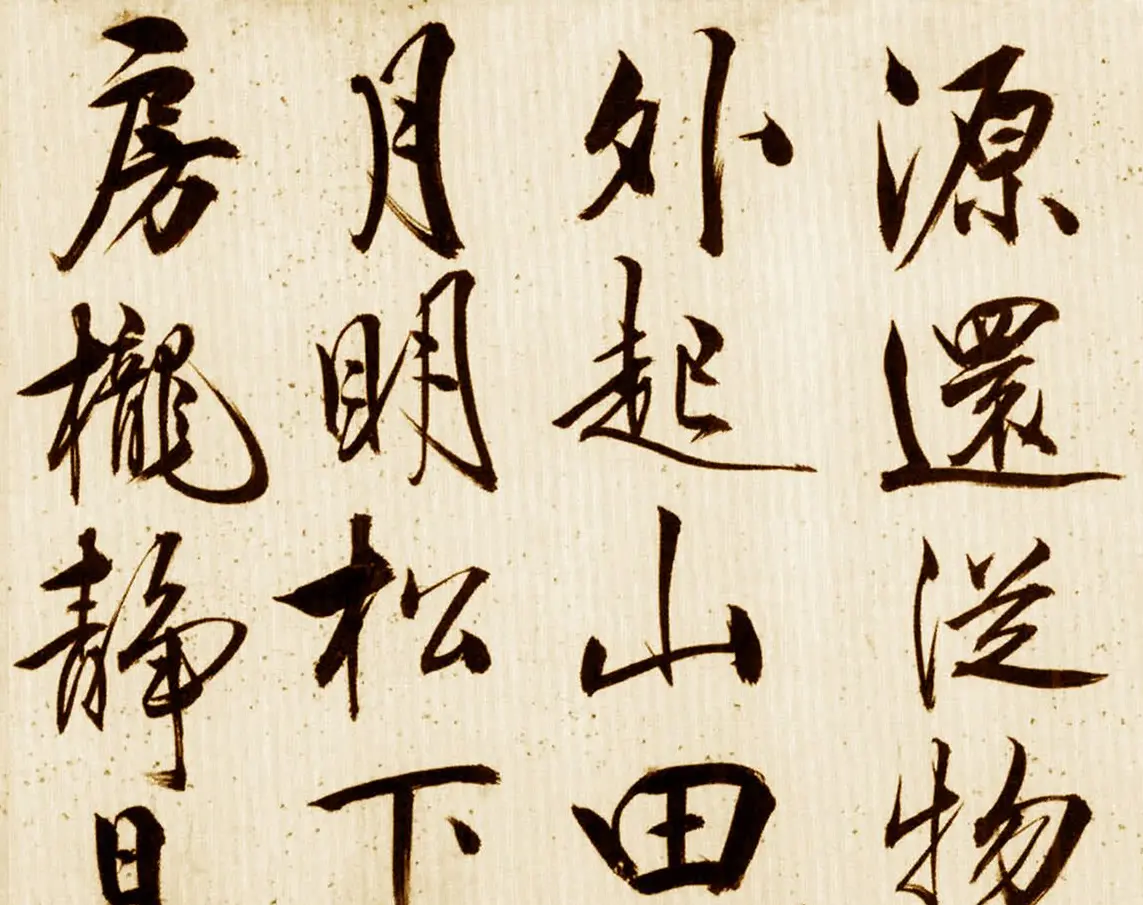 源還從物
外起山田
月明松下
房櫳靜日